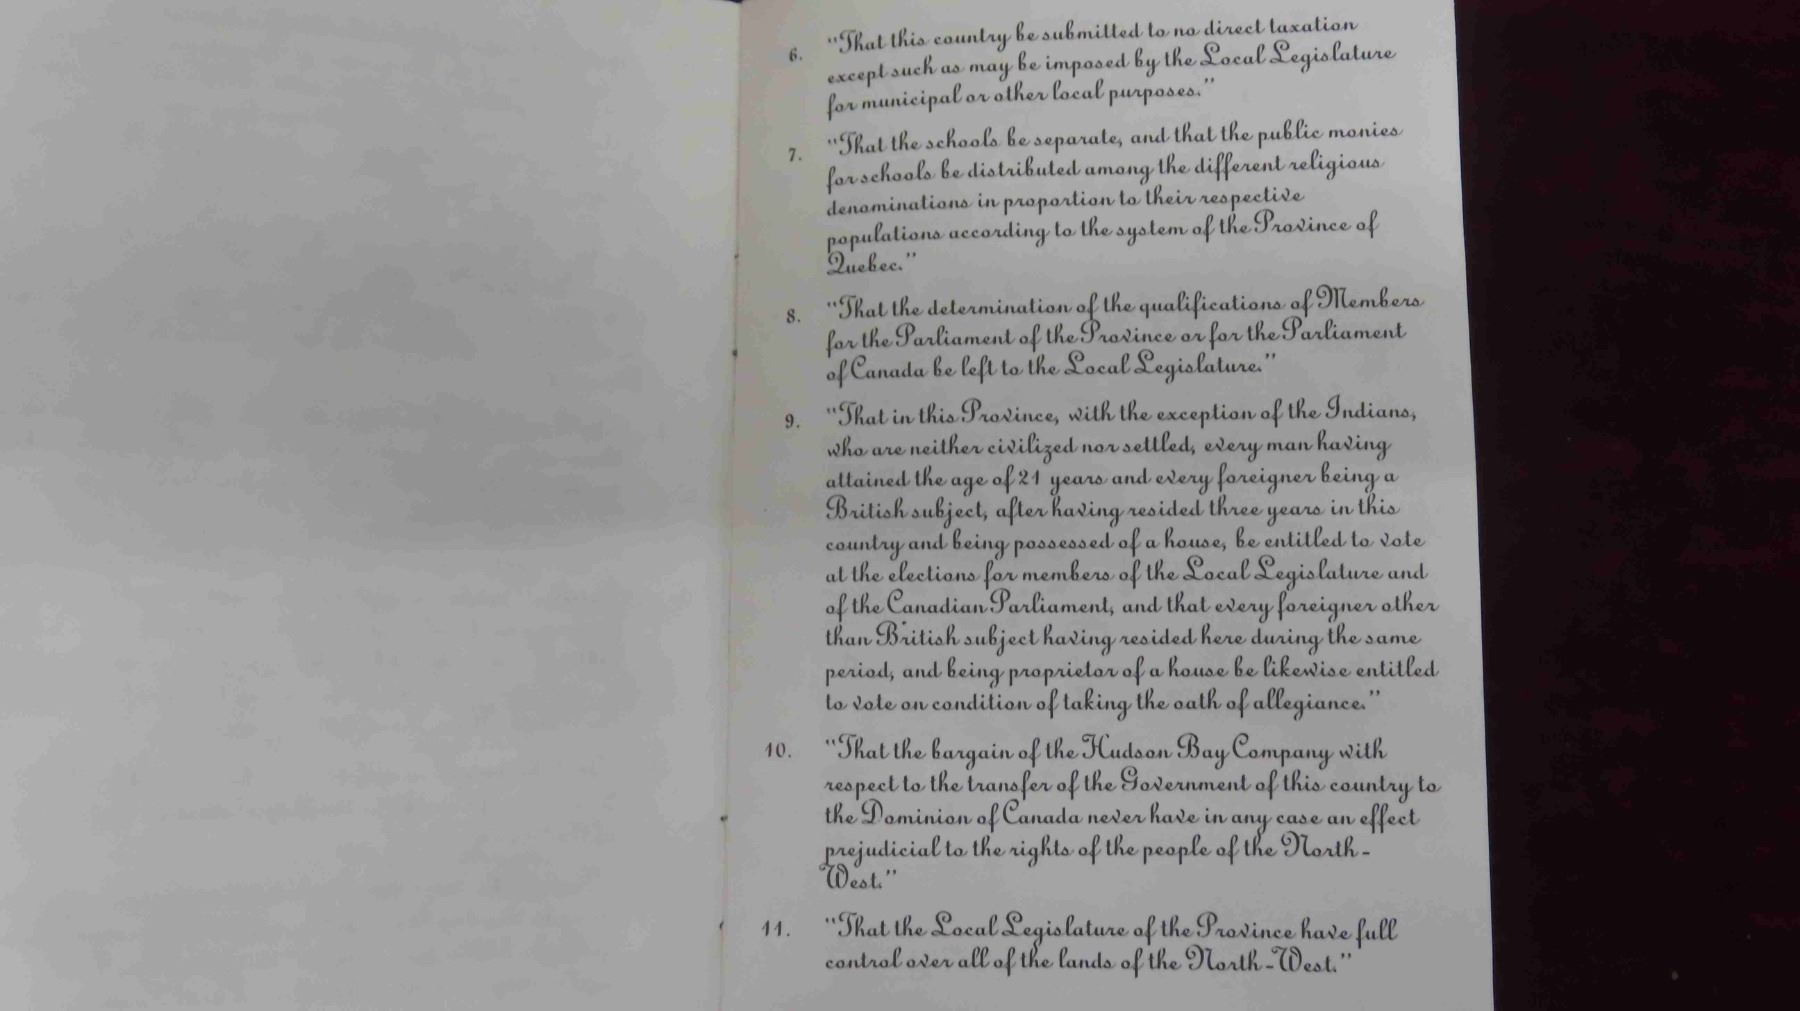 6. "That this country be submitted to no direct taxation
except such as may be imposed by the Local Legislature
for municipal or other local purposes."
7. "That the schools be separate, and that the public monies
for schools be distributed among the different religious
denominations in proportion to their respective
populations according to the system of the Province of
Quebec."
8. "That the determination of the qualifications of Members
for the Parliament of the Province or for the Parliament
of Canada be left to the Local Legislature."
9. "That in this Province, with the exception of the Indians,
who are neither civilized nor settled, every man having
attained the age of 21 years and every foreigner being a
British subject, after having resided three years in this
country and being possessed of a house, be entitled to vote
at the elections for members of the Local Legislature and
of the Canadian Parliament, and that every foreigner other
than British subject having resided here during the same
period, and being proprietor of a house be likewise entitled
to vote on condition of taking the oath of allegiance."
10. "That the bargain of the Hudson Bay Company with
respect to the transfer of the Government of this country to
the Dominion of Canada never have in any case an effect
prejudicial to the rights of the people of the North-
West."
11. "That the Local Legislature of the Province have full
control over all of the lands of the North-West."